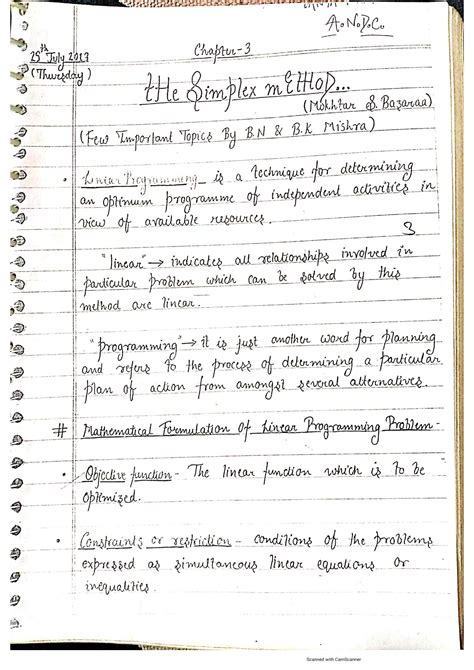 A.N.D.C.
25th July 2017
(Thursday)
Chapter-3
tHe Simplex mETHOD...
(Mokhtar S. Bazaraa)
(Few Important Topics By B.N & B.K Mishra)
• Linear Programming - is a technique for determining
an optimum programme of independent activities in
view of available resources.
3
"linear" → indicates all relationships involved in
particular problem which can be solved by this
method are linear.
"programming" → it is just another word for planning
and refers to the process of determining a particular
plan of action from amongst several alternatives.
# Mathematical Formulation of Linear Programming Problem-
• Objective function - The linear function which is to be
optimized.
• Constraints or restriction - conditions of the problems
expressed as simultaneous linear equations or
inequalities.
Scanned with CamScanner